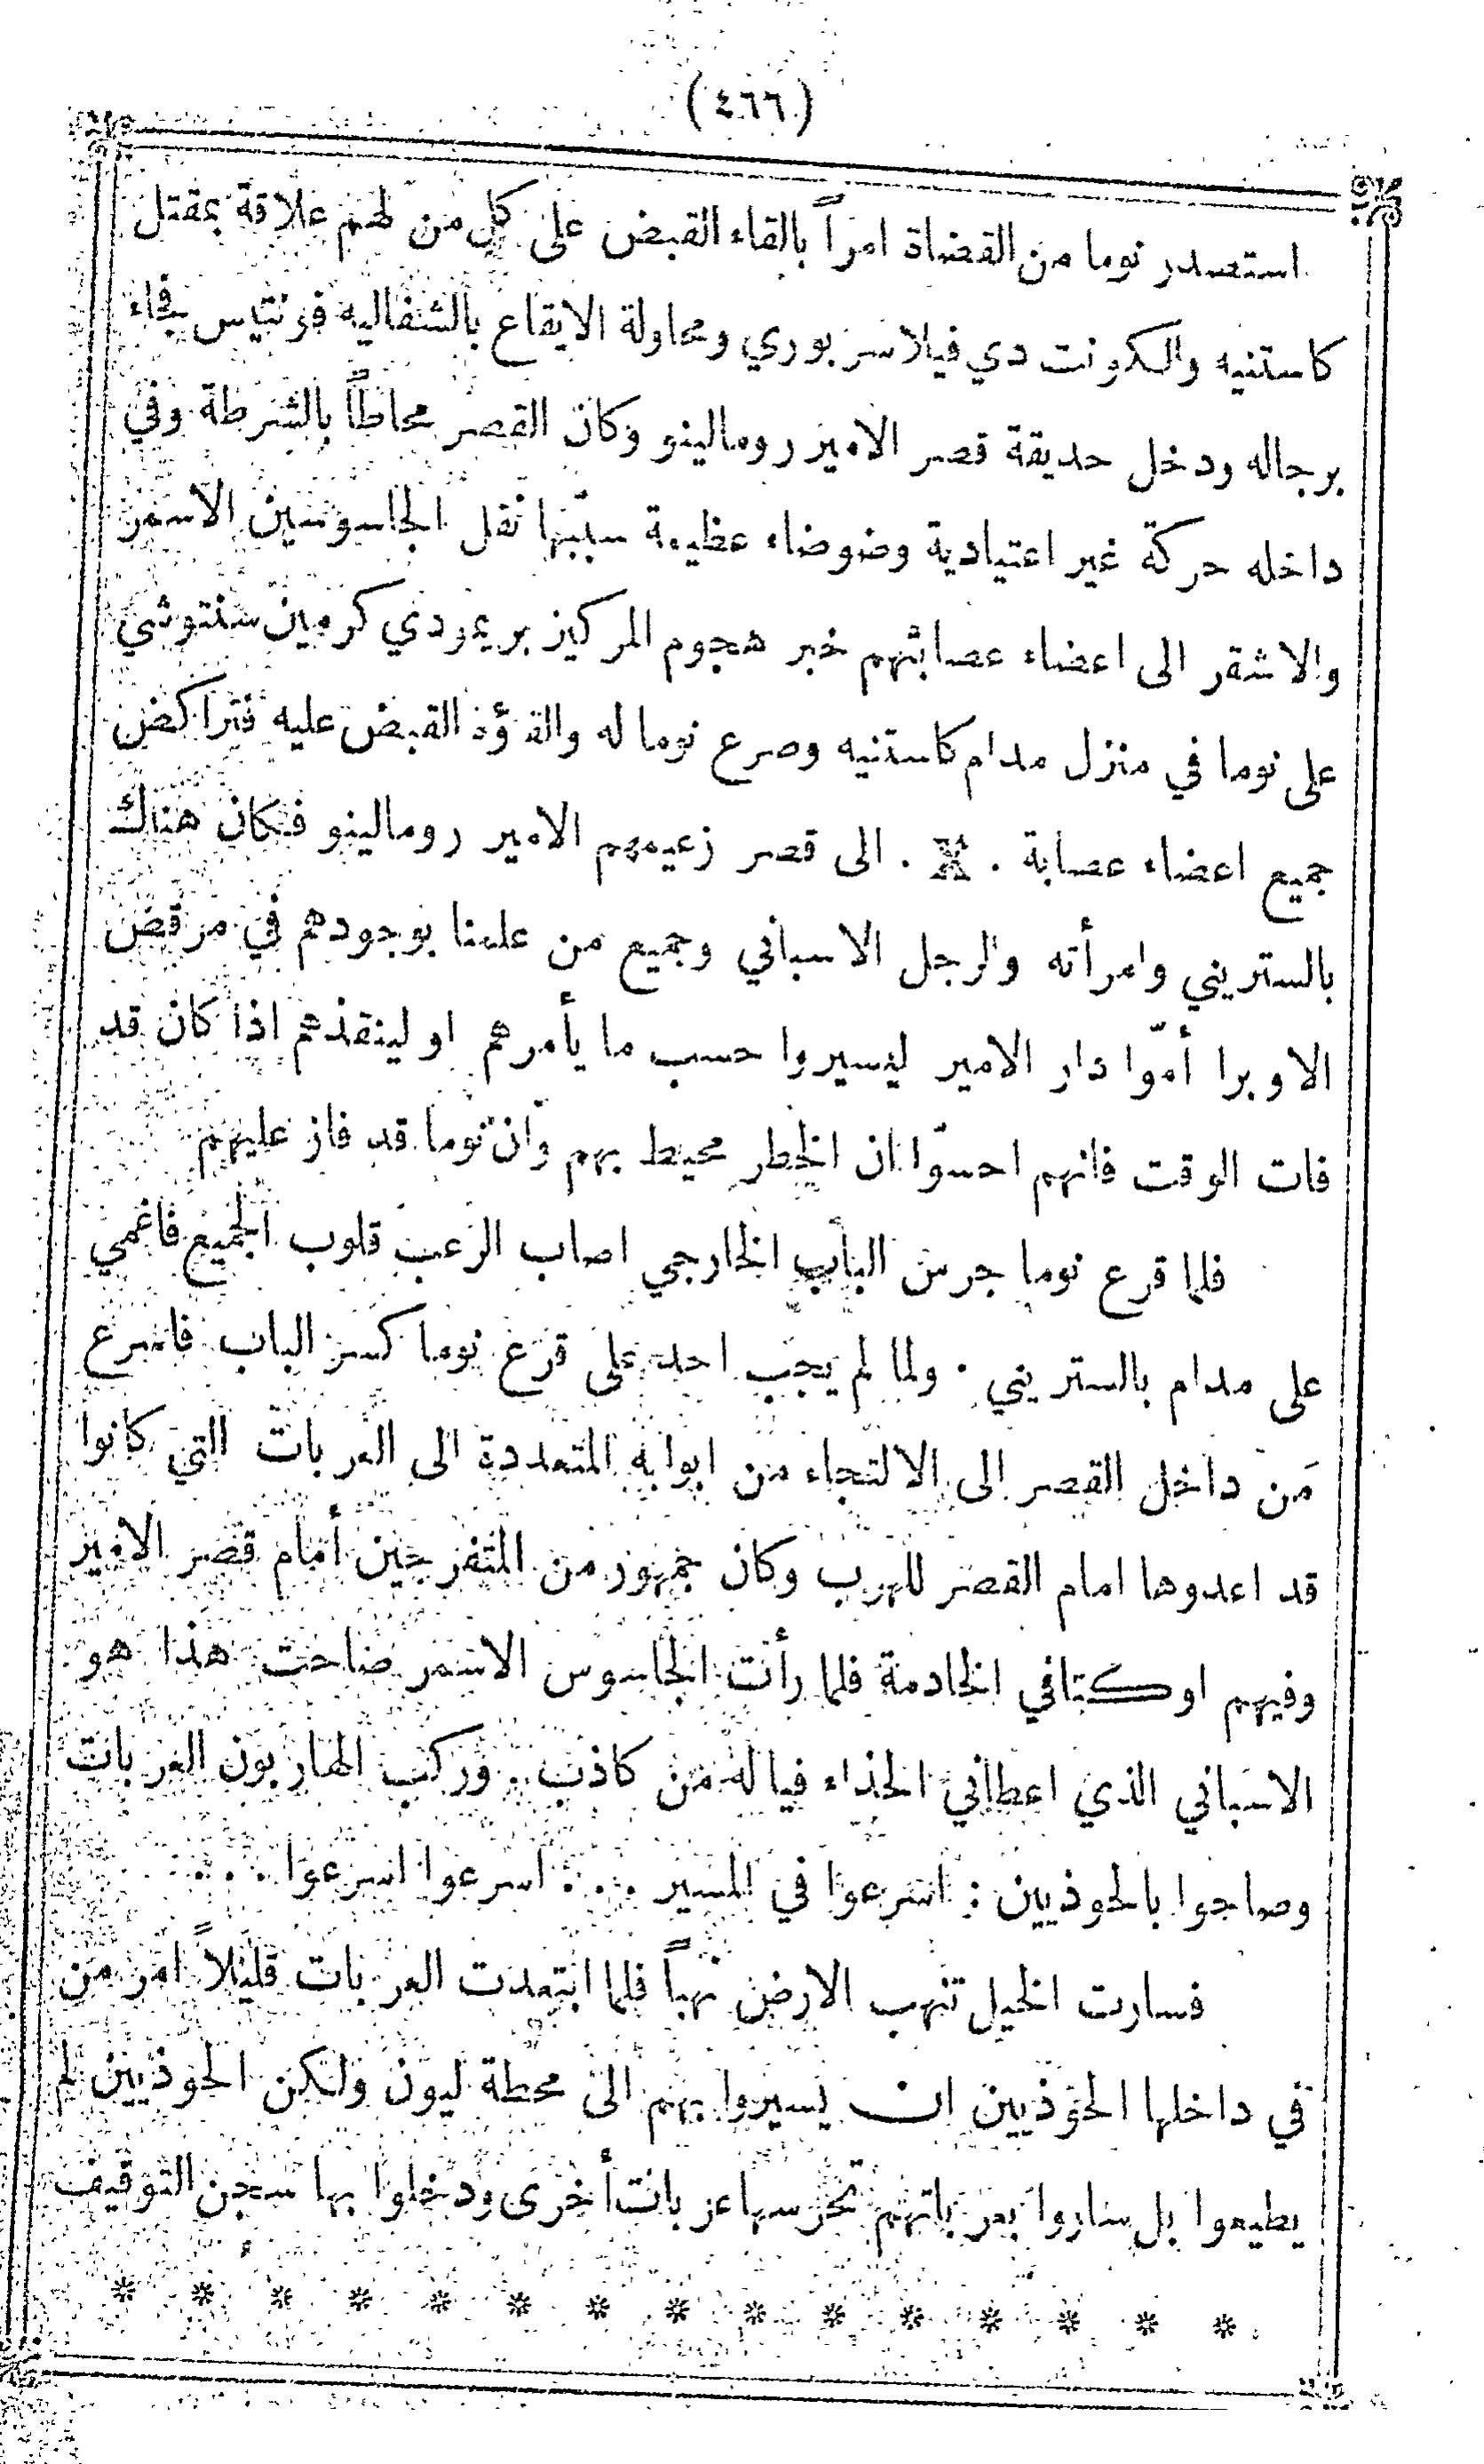 (٤٦٦)
استصدر نوما من القضاة امراً بالقاء القبض على كل من لهم علاقة بمقتل
كاستنيه والكونت دي فيلاسر بوري ومحاولة الايقاع بالشفاليه فرنتيس فجاء
برجاله ودخل حديقة قصر الامير رومالينو وكان القصر محاطاً بالشرطة وفي
داخله حركة غير اعتيادية وضوضاء عظيمة سببها نقل الجاسوسين الاسمر
والاشقر الى اعضاء عصابتهم خبر هجوم المركيز بريمو دي كرمين سنتوشي
على نوما في منزل مدام كاستنيه وصرع نوما له والقؤه القبض عليه فتراكض
جميع اعضاء عصابة . X . الى قصر زعيمهم الامير رومالينو فكان هناك
بالستريني وامرأته والرجل الاسباني وجميع من علمنا بوجودهم في مرقص
الاوبرا أمّوا دار الامير ليسيروا حسب ما يأمرهم او لينقذهم اذا كان قد
فات الوقت فانهم احسّوا ان الخطر محيط بهم وان نوما قد فاز عليهم
فلما قرع نوما جرس الباب الخارجي اصاب الرعب قلوب الجميع فاغمي
على مدام بالستريني . ولما لم يجب احد على قرع نوما كسر الباب فاسرع
مَن داخل القصر الى الالتجاء من ابوابه المتعددة الى العربات التي كانوا
قد اعدوها امام القصر للهرب وكان جمهور من المتفرجين أمام قصر الامير
وفيهم اوكتافي الخادمة فلما رأت الجاسوس الاسمر صاحت هذا هو
الاسباني الذي اعطاني الحذاء فيا له من كاذب . وركب الهاربون العربات
وصاحوا بالحوذيين : اسرعوا في المسير . . . اسرعوا اسرعوا . . . .
فسارت الخيل تنهب الارض نهباً فلما ابتعدت العربات قليلاً امر من
في داخلها الحوذيين ان يسيروا بهم الى محطة ليون ولكن الحوذيين لم
يطيعوا بل ساروا بعرباتهم تحرسها عربات أخرى ودخلوا بها سجن التوقيف
* * * * * * * * * * * * * * *